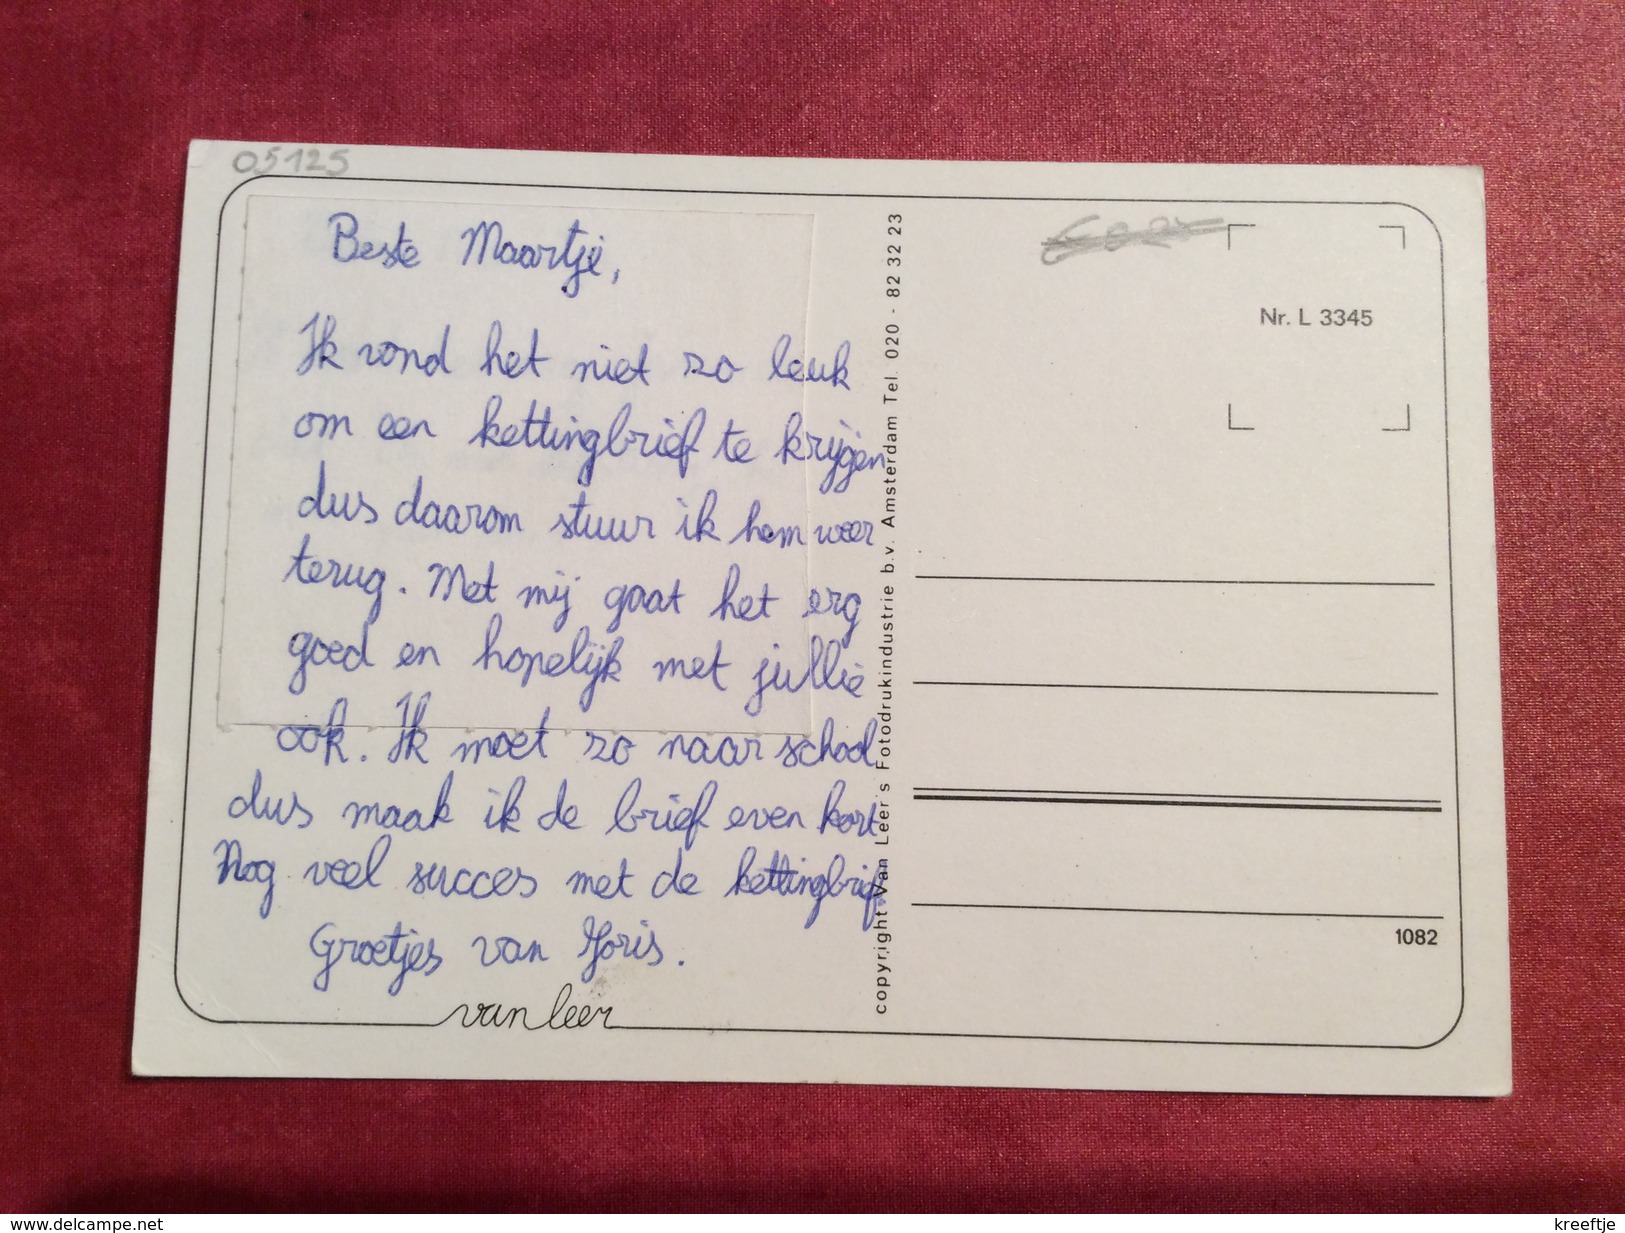 05125
Beste Maartje,
Ik vond het niet zo leuk
om een kettingbrief te krijgen
dus daarom stuur ik hem weer
terug. Met mij gaat het erg
goed en hopelijk met jullie
ook. Ik moet zo naar school
dus maak ik de brief even kort
Nog veel succes met de kettingbrief.
Groetjes van Joris.
van leer
copyright Van Leer's Fotodrukindustrie b.v. Amsterdam Tel. 020 - 82 32 23
Nr. L 3345
1082
www.delcampe.net
kreeftje